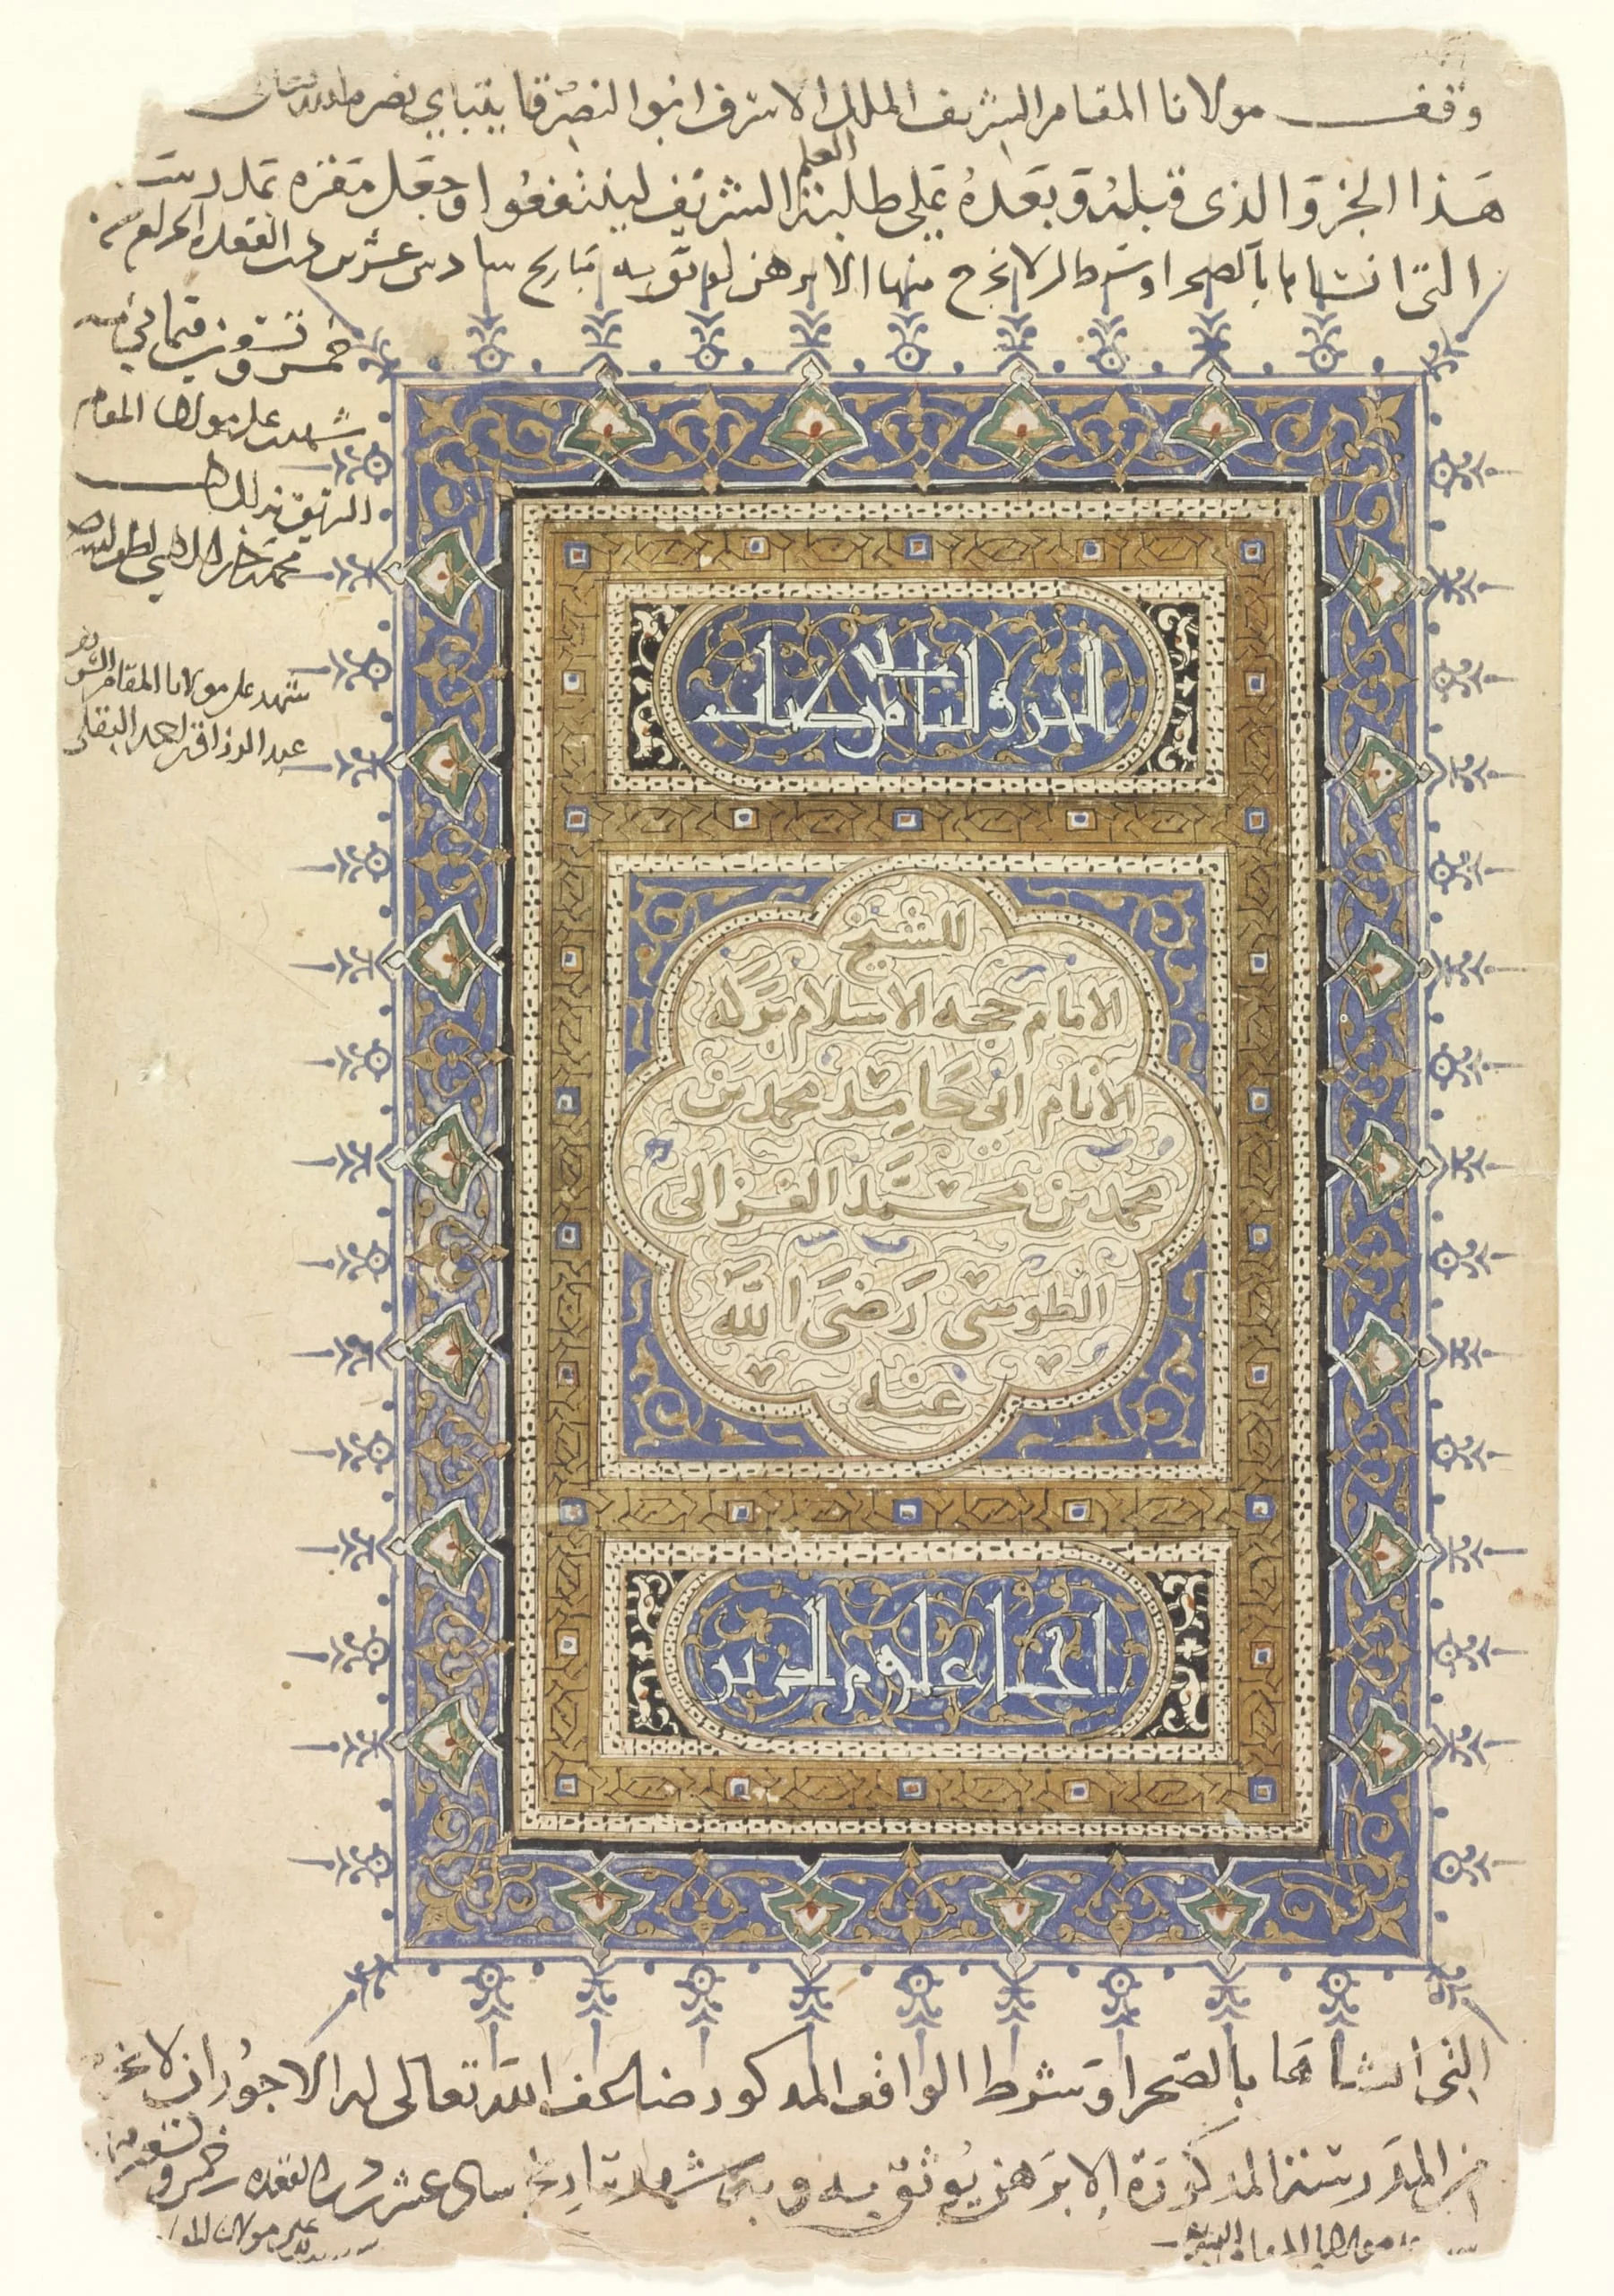 وقف مولانا المقام الشريف الملك الاشرف ابو النصر قايتباي نصره الله تعالى
العلم
هذا الجزو الذي قبله وبعده على طلبة الشريف لينتفعوا وجعل مقره بمدرسته
التي انشاها بالصحرا وشرط ان لا يخرج منها الا برهن يوثق به بتاريخ سادس عشر ذي القعدة الحرام سنة
خمس وتسعين وثمانمائة
شهد على مولانا المقام
الشريف بذلك
محمد
شهد على مولانا المقام الشريف
عبد الرزاق احمد البقلي
الجزو الثاني من كتاب
للشيخ
الامام حجه الاسلام بركه
الانام ابي حامد محمد بن
محمد بن محمد الغزالى
الطوسي رضى الله
عنه
احيا علوم الدين
التي انشاها بالصحرا وشرط الواقف المذكور ضاعف الله تعالى له الاجور ان لا يخرج
من المدرسة المذكورة الا برهن يوثق به وبه شهد بتاريخ سادس عشر ذي القعدة خمس وتسعين
على مولانا المقام